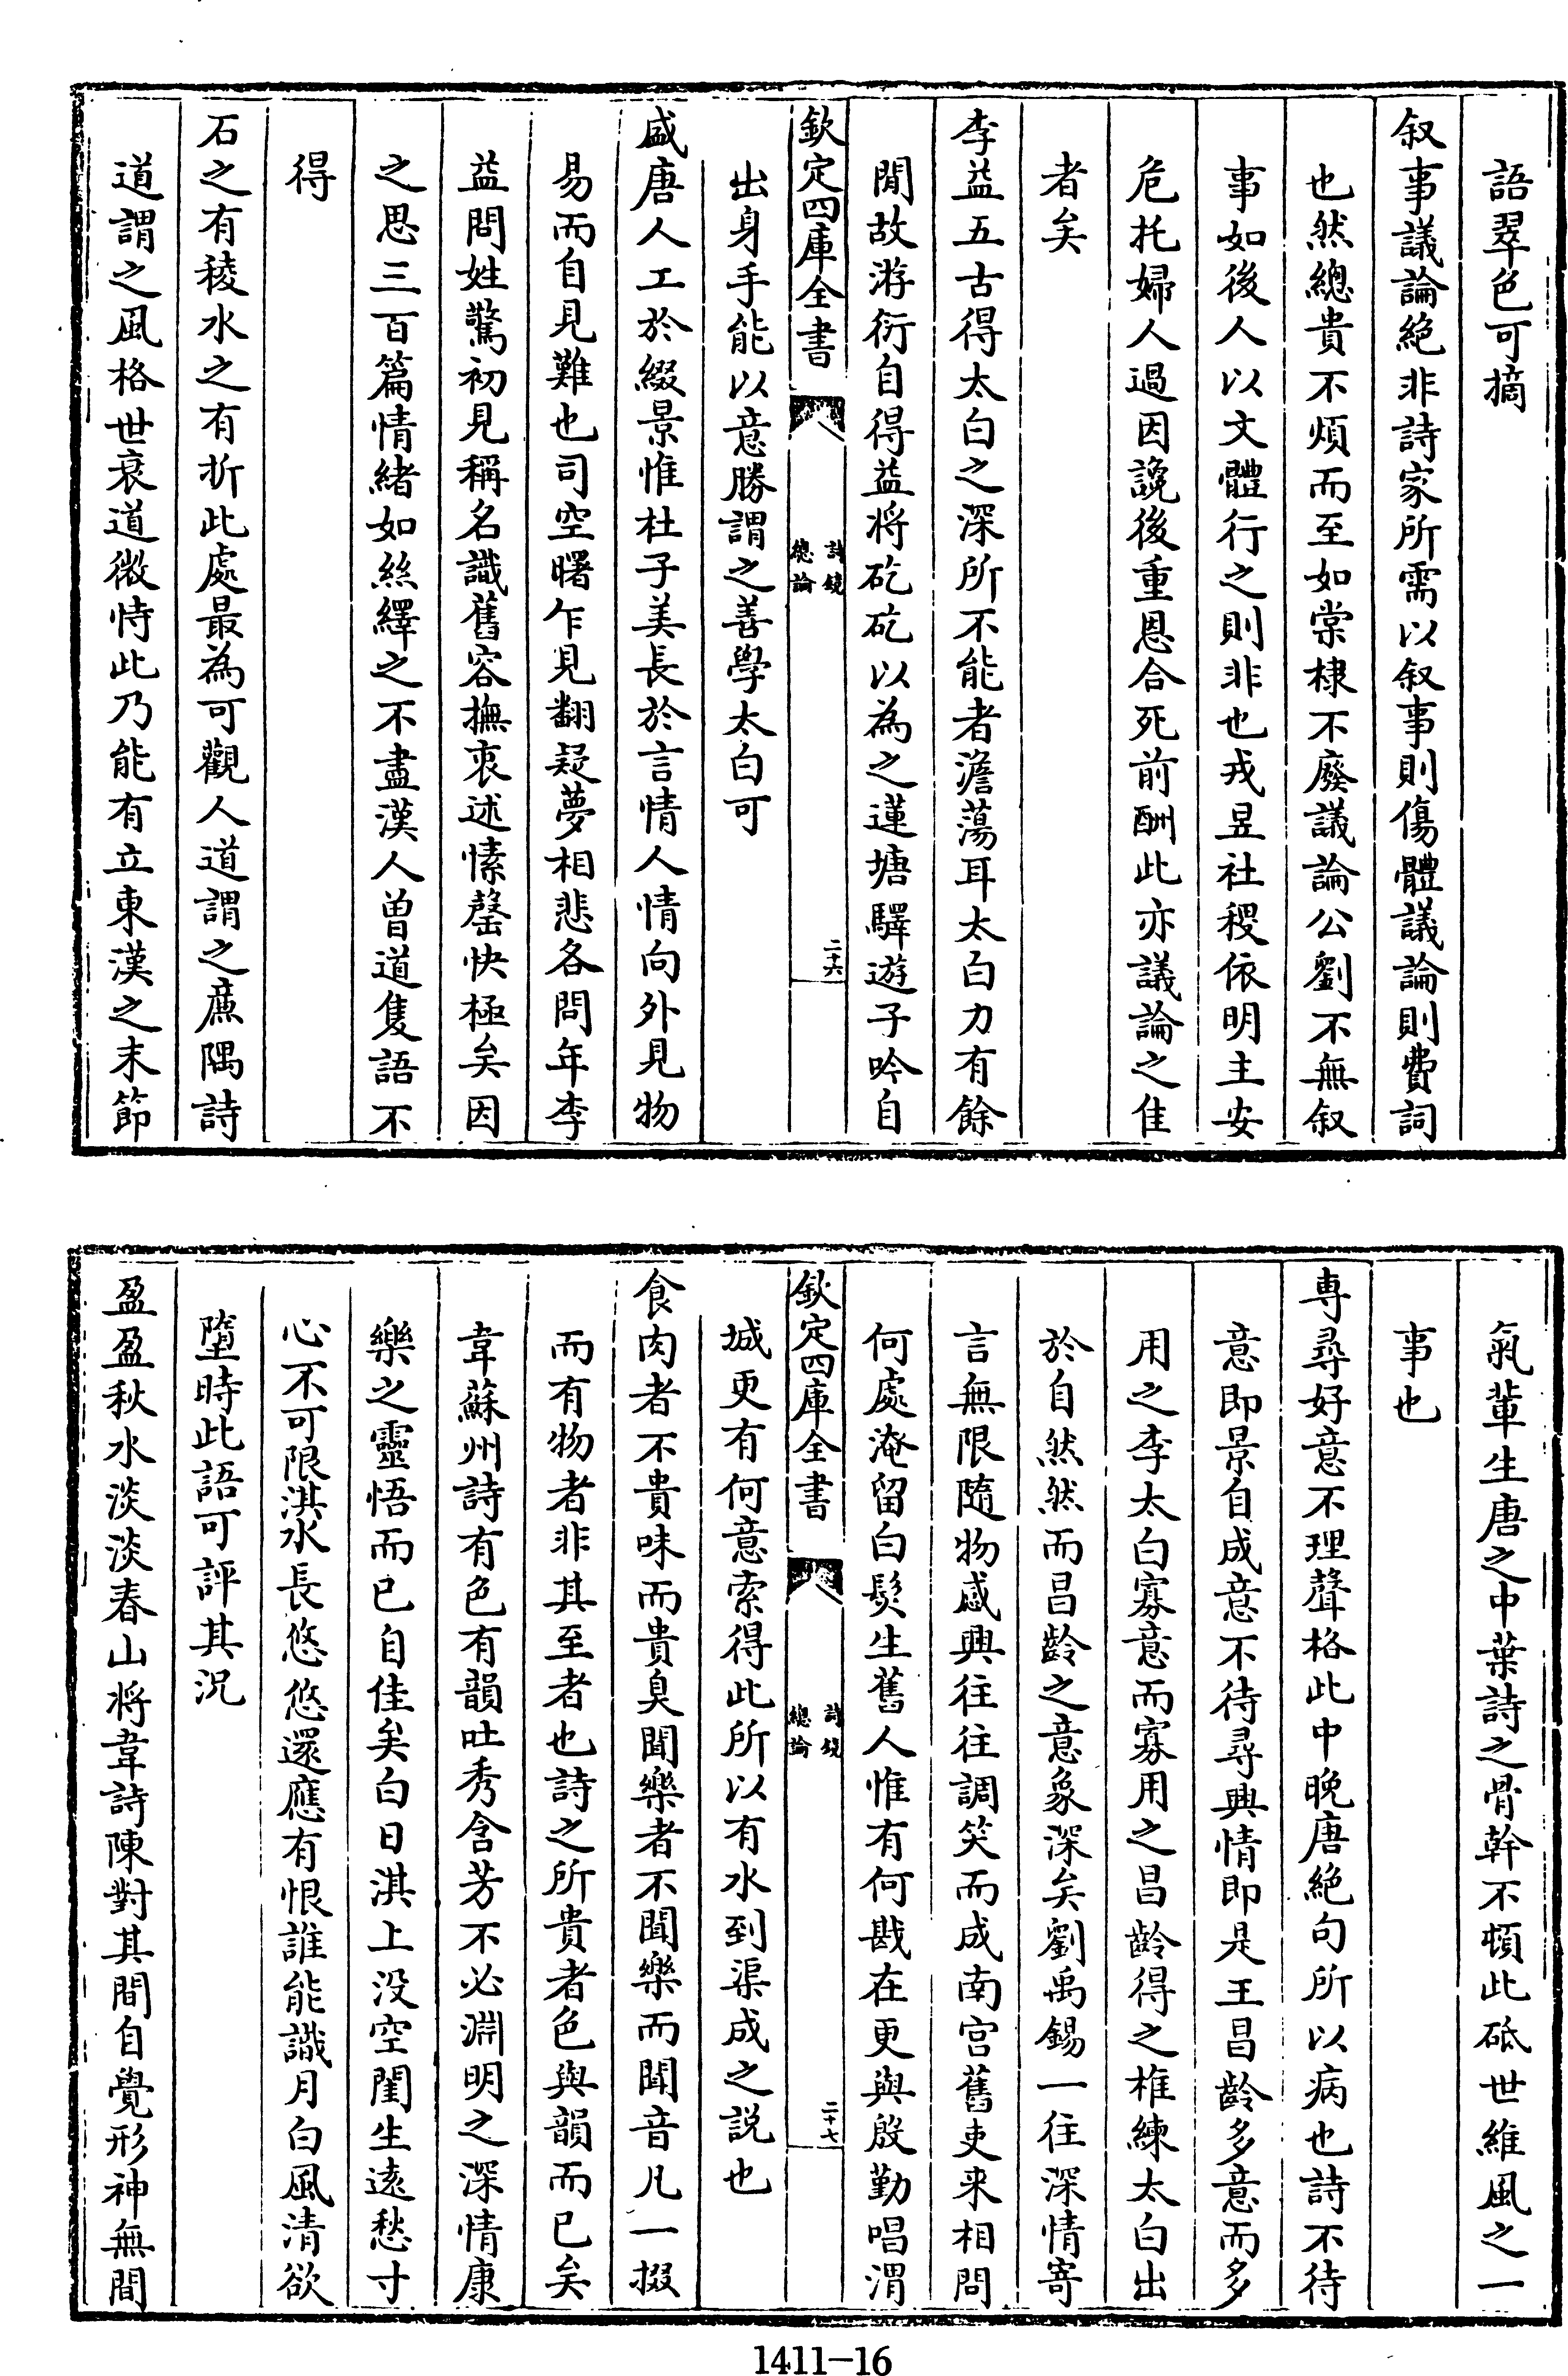 語翠色可摘
叙事議論絶非詩家所需以叙事則傷體議論則費詞
也然總貴不煩而至如棠棣不廢議論公劉不無叙
事如後人以文體行之則非也戎昱社稷依明主安
危托婦人過因讒後重恩合死前酬此亦議論之佳
者矣
李益五古得太白之深所不能者澹蕩耳太白力有餘
閒故游衍自得益将矻矻以為之蓮塘驛遊子吟自
欽定四庫全書
詩鏡
總論
二十六
出身手能以意勝謂之善學太白可
盛唐人工於綴景惟杜子美長於言情人情向外見物
易而自見難也司空曙乍見翻疑夢相悲各問年李
益問姓驚初見稱名識舊容撫衷述愫罄快極矣因
之思三百篇情緒如絲繹之不盡漢人曽道隻語不
得
石之有稜水之有折此處最為可觀人道謂之廉隅詩
道謂之風格世衰道微恃此乃能有立東漢之末節
氣輩生唐之中葉詩之骨幹不頓此砥世維風之一
事也
専尋好意不理聲格此中晚唐絶句所以病也詩不待
意即景自成意不待尋興情即是王昌齡多意而多
用之李太白寡意而寡用之昌齡得之椎練太白出
於自然然而昌齡之意象深矣劉禹錫一往深情寄
言無限隨物感興往往調笑而成南宫舊吏来相問
何處淹留白髮生舊人惟有何戡在更與殷勤唱渭
欽定四庫全書
詩鏡
總論
二十七
城更有何意索得此所以有水到渠成之説也
食肉者不貴味而貴臭聞樂者不聞樂而聞音凡一掇
而有物者非其至者也詩之所貴者色與韻而已矣
韋蘇州詩有色有韻吐秀含芳不必淵明之深情康
樂之靈悟而已自佳矣白日淇上没空閨生逺愁寸
心不可限淇水長悠悠還應有恨誰能識月白風清欲
墮時此語可評其况
盈盈秋水淡淡春山将韋詩陳對其間自覺形神無間
1411-16